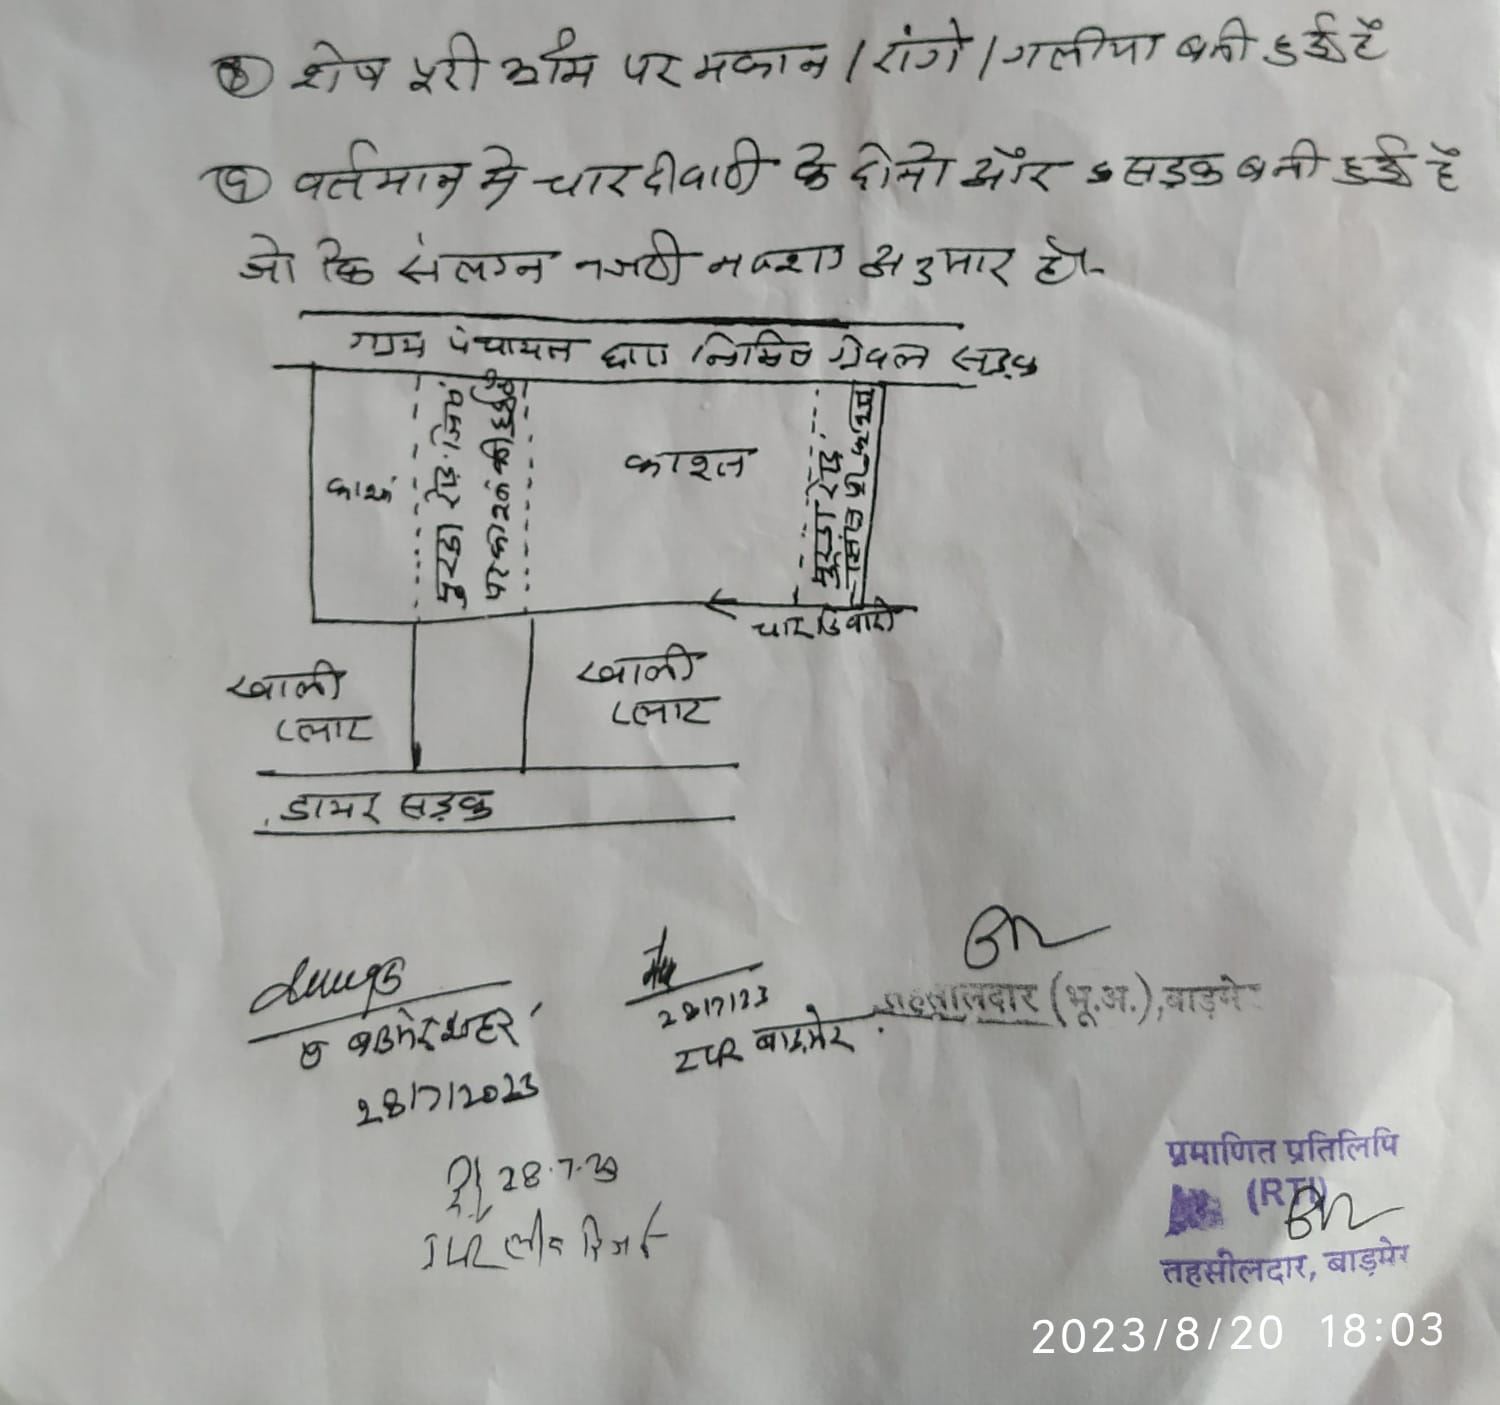 ⑧ शेष पुरी भूमि पर मकान / रांगे / गलीया बनी हुई है
⑨ वर्तमान मे चारदीवारी के दोनो और सड़क बनी हुई है
जो कि संलग्न नजरी नक्शा अनुसार है।-
ग्राम पंचायत द्वारा निर्मित ग्रेवल सड़क
काश्त
मुरडा रोड़ जिस
पर काश्त की हुई है
काश्त
मुरडा रोड़
चारदिवारी
खाली
प्लाट
खाली
प्लाट
डामर सड़क
बाडमेर शहर
28/7/2023
28/7/23
ILR बाड़मेर
तहसीलदार (भू.अ.), बाड़मेर
28.7.23
ILR
प्रमाणित प्रतिलिपि
(RTI)
तहसीलदार, बाड़मेर
2023/8/20 18:03